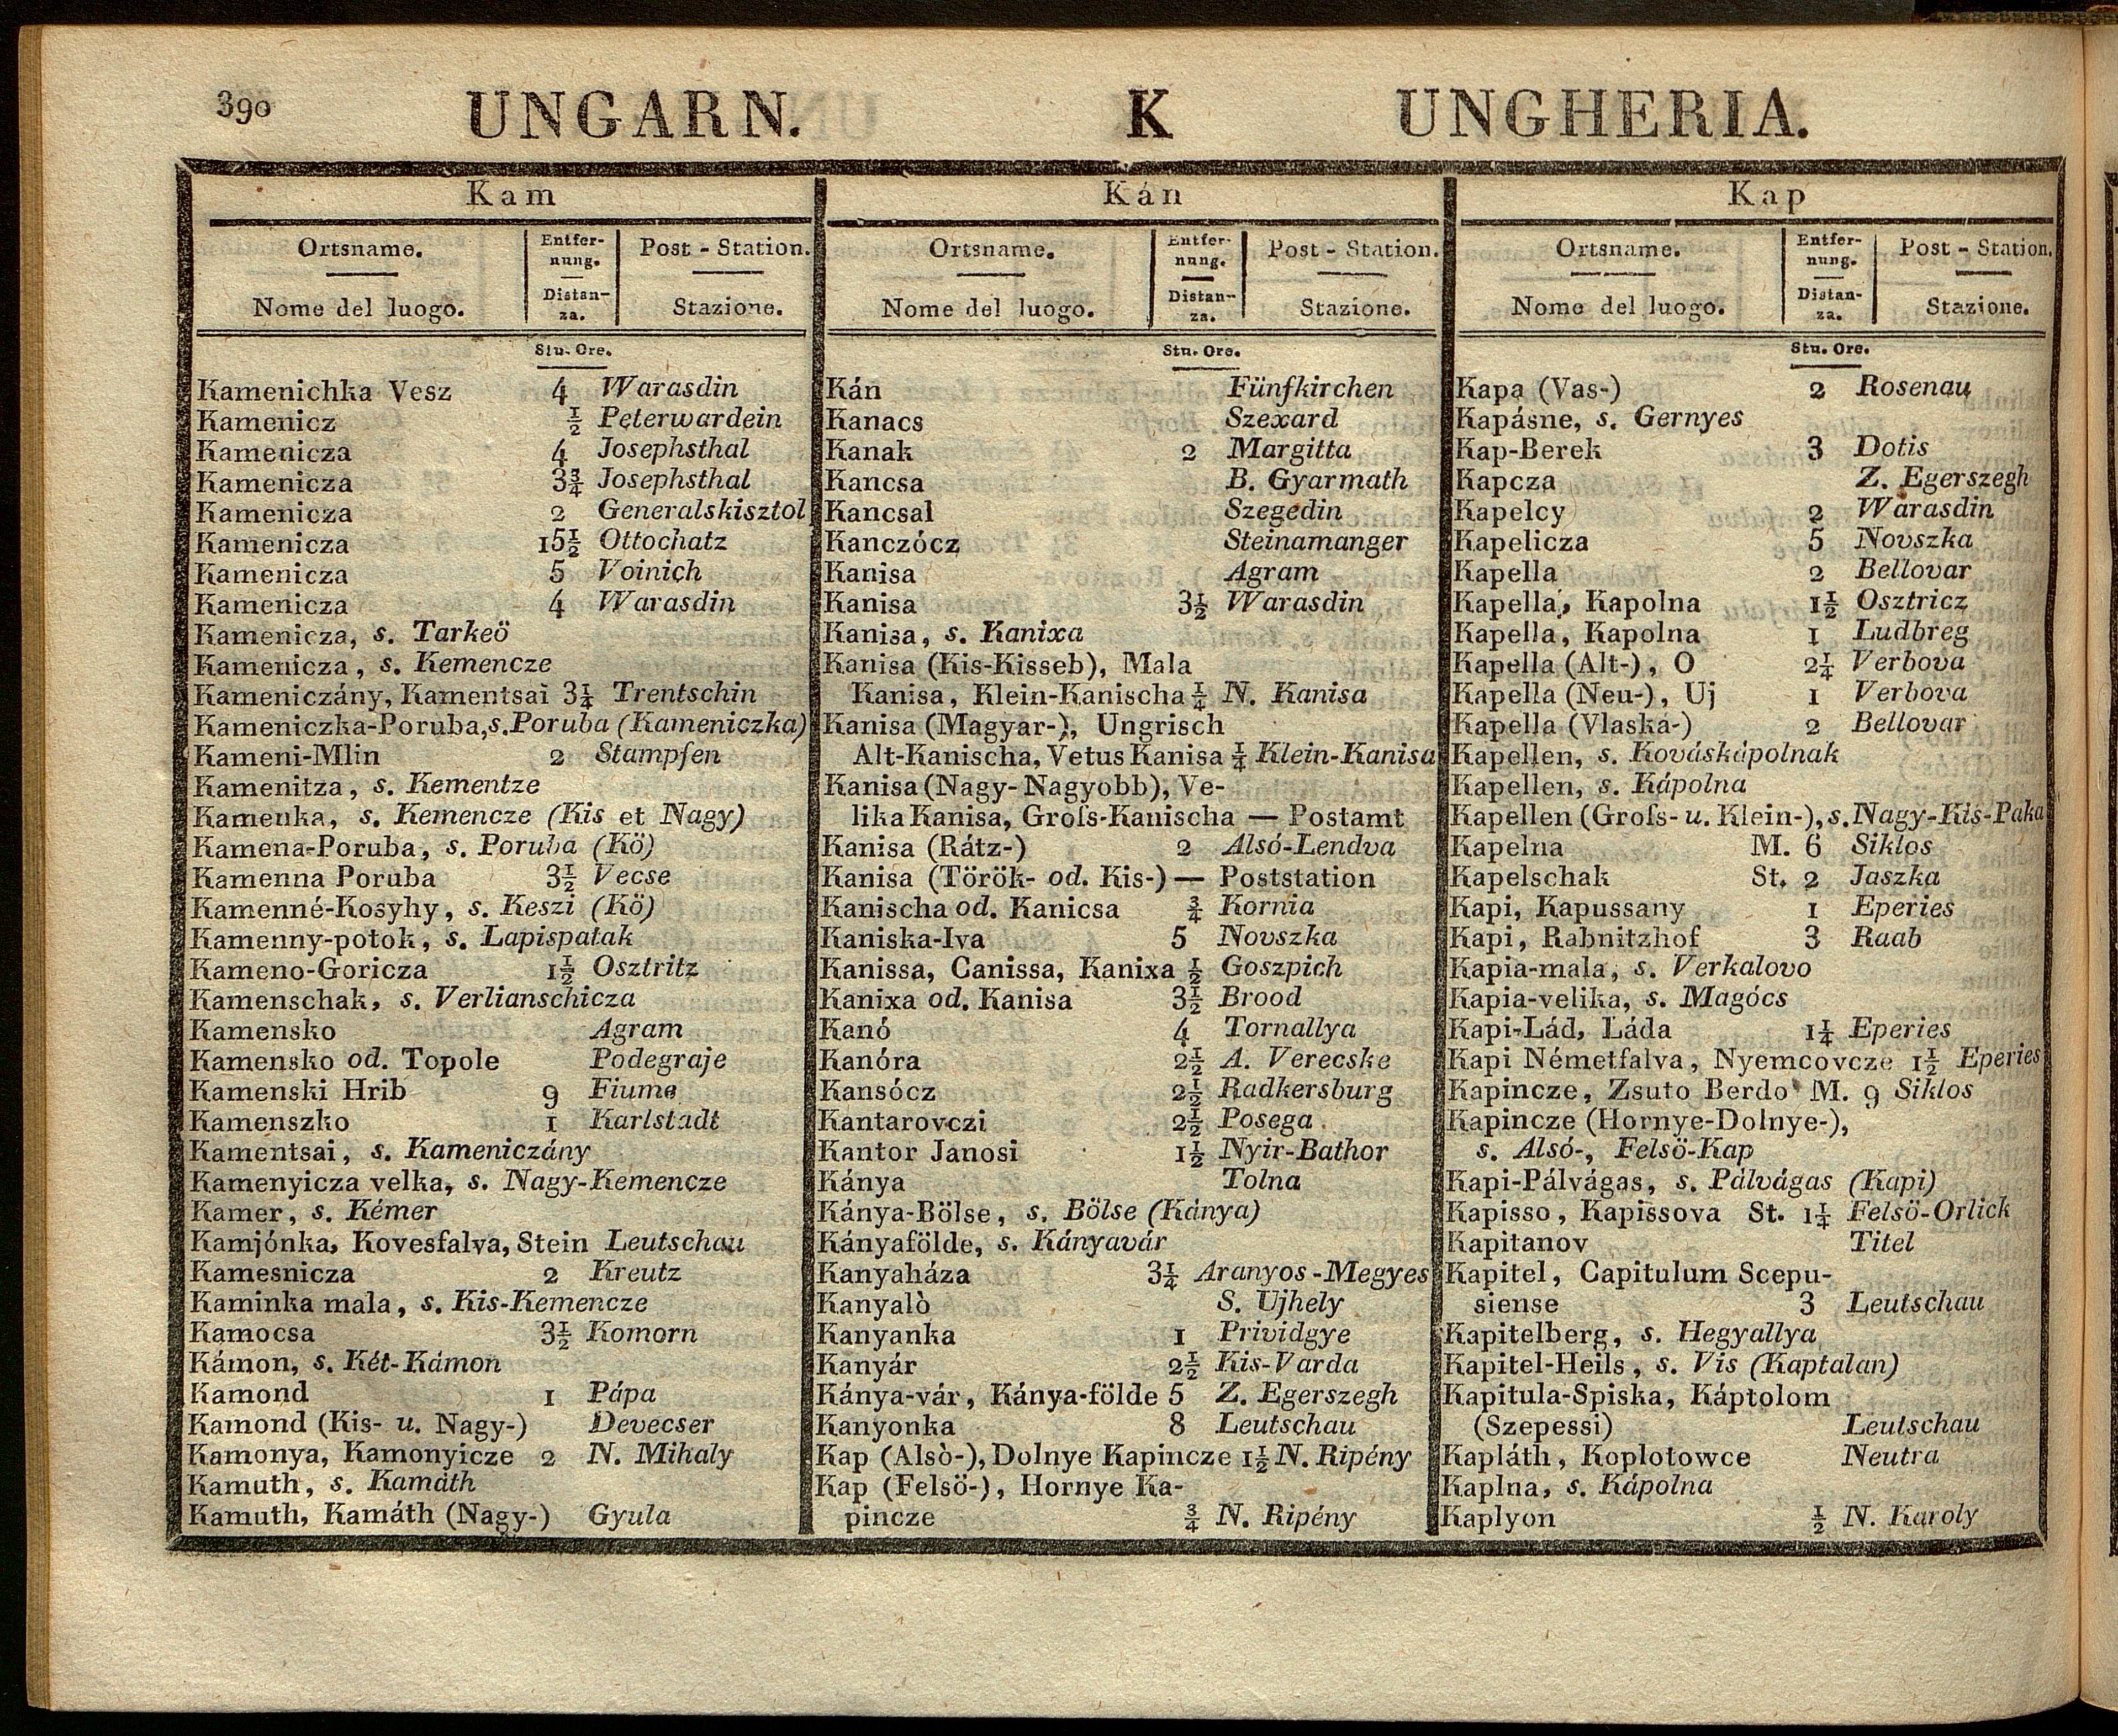 390 UNGARN. K UNGHERIA.
Kam
Ortsname. Entfer- Post - Station.
nung.
Nome del luogo. Distan- Stazione.
za.
Stu. Ore.
Kamenichka Vesz 4 Warasdin
Kamenicz ½ Peterwardein
Kamenicza 4 Josephsthal
Kamenicza 3¾ Josephsthal
Kamenicza 2 Generalskisztol
Kamenicza 15½ Ottochatz
Kamenicza 5 Voinich
Kamenicza 4 Warasdin
Kamenicza, s. Tarkeö
Kamenicza, s. Kemencze
Kameniczány, Kamentsai 3¼ Trentschin
Kameniczka-Poruba, s. Poruba (Kameniczka)
Kameni-Mlin 2 Stampfen
Kamenitza, s. Kementze
Kamenka, s. Kemencze (Kis et Nagy)
Kamena-Poruba, s. Poruba (Kö)
Kamenna Poruba 3½ Vecse
Kamenné-Kosyhy, s. Keszi (Kö)
Kamenny-potok, s. Lapispatak
Kameno-Goricza 1½ Osztritz
Kamenschak, s. Verlianschicza
Kamensko Agram
Kamensko od. Topole Podegraje
Kamenski Hrib 9 Fiume
Kamenszko 1 Karlstadt
Kamentsai, s. Kameniczány
Kamenyicza velka, s. Nagy-Kemencze
Kamer, s. Kémer
Kamjónka, Kovesfalva, Stein Leutschau
Kamesnicza 2 Kreutz
Kaminka mala, s. Kis-Kemencze
Kamocsa 3½ Komorn
Kámon, s. Két-Kámon
Kamond 1 Pápa
Kamond (Kis- u. Nagy-) Devecser
Kamonya, Kamonyicze 2 N. Mihaly
Kamuth, s. Kamáth
Kamuth, Kamáth (Nagy-) Gyula
Kán
Ortsname. Entfer- Post - Station.
nung.
Nome del luogo. Distan- Stazione.
za.
Stu. Ore.
Kán Fünfkirchen
Kanacs Szexard
Kanak 2 Margitta
Kancsa B. Gyarmath
Kancsal Szegedin
Kanczócz Steinamanger
Kanisa Agram
Kanisa 3½ Warasdin
Kanisa, s. Kanixa
Kanisa (Kis-Kisseb), Mala
Kanisa, Klein-Kanischa ¼ N. Kanisa
Kanisa (Magyar-), Ungrisch
Alt-Kanischa, Vetus Kanisa ¼ Klein-Kanisa
Kanisa (Nagy- Nagyobb), Ve-
lika Kanisa, Groſs-Kanischa — Postamt
Kanisa (Rátz-) 2 Alsó-Lendva
Kanisa (Török- od. Kis-) — Poststation
Kanischa od. Kanicsa ¾ Kornia
Kaniska-Iva 5 Novszka
Kanissa, Canissa, Kanixa ½ Goszpich
Kanixa od. Kanisa 3½ Brood
Kanó 4 Tornallya
Kanóra 2½ A. Verecske
Kansócz 2½ Radkersburg
Kantarovczi 2½ Posega
Kantor Janosi 1½ Nyir-Bathor
Kánya Tolna
Kánya-Bölse, s. Bölse (Kánya)
Kányafölde, s. Kányavár
Kanyaháza 3¼ Aranyos-Megyes
Kanyalò S. Ujhely
Kanyanka 1 Prividgye
Kanyár 2½ Kis-Varda
Kánya-vár, Kánya-földe 5 Z. Egerszegh
Kanyonka 8 Leutschau
Kap (Alsò-), Dolnye Kapincze 1½ N. Ripény
Kap (Felsö-), Hornye Ka-
pincze ¾ N. Ripény
Kap
Ortsname. Entfer- Post - Station.
nung.
Nome del luogo. Distan- Stazione.
za.
Stu. Ore.
Kapa (Vas-) 2 Rosenau
Kapásne, s. Gernyes
Kap-Berek 3 Dotis
Kapcza Z. Egerszegh
Kapelcy 2 Warasdin
Kapelicza 5 Novszka
Kapella 2 Bellovar
Kapella, Kapolna 1½ Osztricz
Kapella, Kapolna 1 Ludbreg
Kapella (Alt-), O 2¼ Verbova
Kapella (Neu-), Uj 1 Verbova
Kapella (Vlaska-) 2 Bellovar
Kapellen, s. Kováskápolnak
Kapellen, s. Kápolna
Kapellen (Groſs- u. Klein-), s. Nagy-Kis-Paka
Kapelna M. 6 Siklos
Kapelschak St. 2 Jaszka
Kapi, Kapussany 1 Eperies
Kapi, Rabnitzhof 3 Raab
Kapia-mala, s. Verkalovo
Kapia-velika, s. Magócs
Kapi-Lád, Láda 1¼ Eperies
Kapi Németfalva, Nyemcovcze 1½ Eperies
Kapincze, Zsuto Berdo M. 9 Siklos
Kapincze (Hornye-Dolnye-),
s. Alsó-, Felsö-Kap
Kapi-Pálvágas, s. Pálvágas (Kapi)
Kapisso, Kapissova St. 1¼ Felsö-Orlick
Kapitanov Titel
Kapitel, Capitulum Scepu-
siense 3 Leutschau
Kapitelberg, s. Hegyallya
Kapitel-Heils, s. Vis (Kaptalan)
Kapitula-Spiska, Káptolom
(Szepessi) Leutschau
Kapláth, Koplotowce Neutra
Kaplna, s. Kápolna
Kaplyon ½ N. Karoly